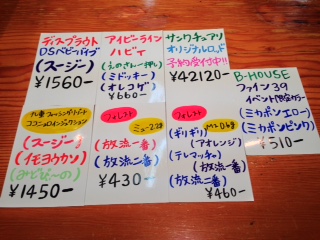 ディスプラウト
DSベビーバイブ
(スージー)
¥1560-
アイビーライン
ハビィ
(えのさん一押し)
(ミドッキー)
(オレコゲ)
¥660-
サンクチュアリ
オリジナルロッド
予約受付中!!
¥42120-
B-HOUSE
ファイン39
イベント限定カラー
(ミカポンエロー)
(ミカポンピンク)
¥510-
ココニョロインジェクション
(スージー)
(イモヨウカン)
¥1450-
フォレスト
ミュー2.2g
(放流一番)
(放流二番)
¥430-
フォレスト
(ギリギリ)
(アオレンジ)
(テレマッチャ)
(放流一番)
(放流二番)
¥460-